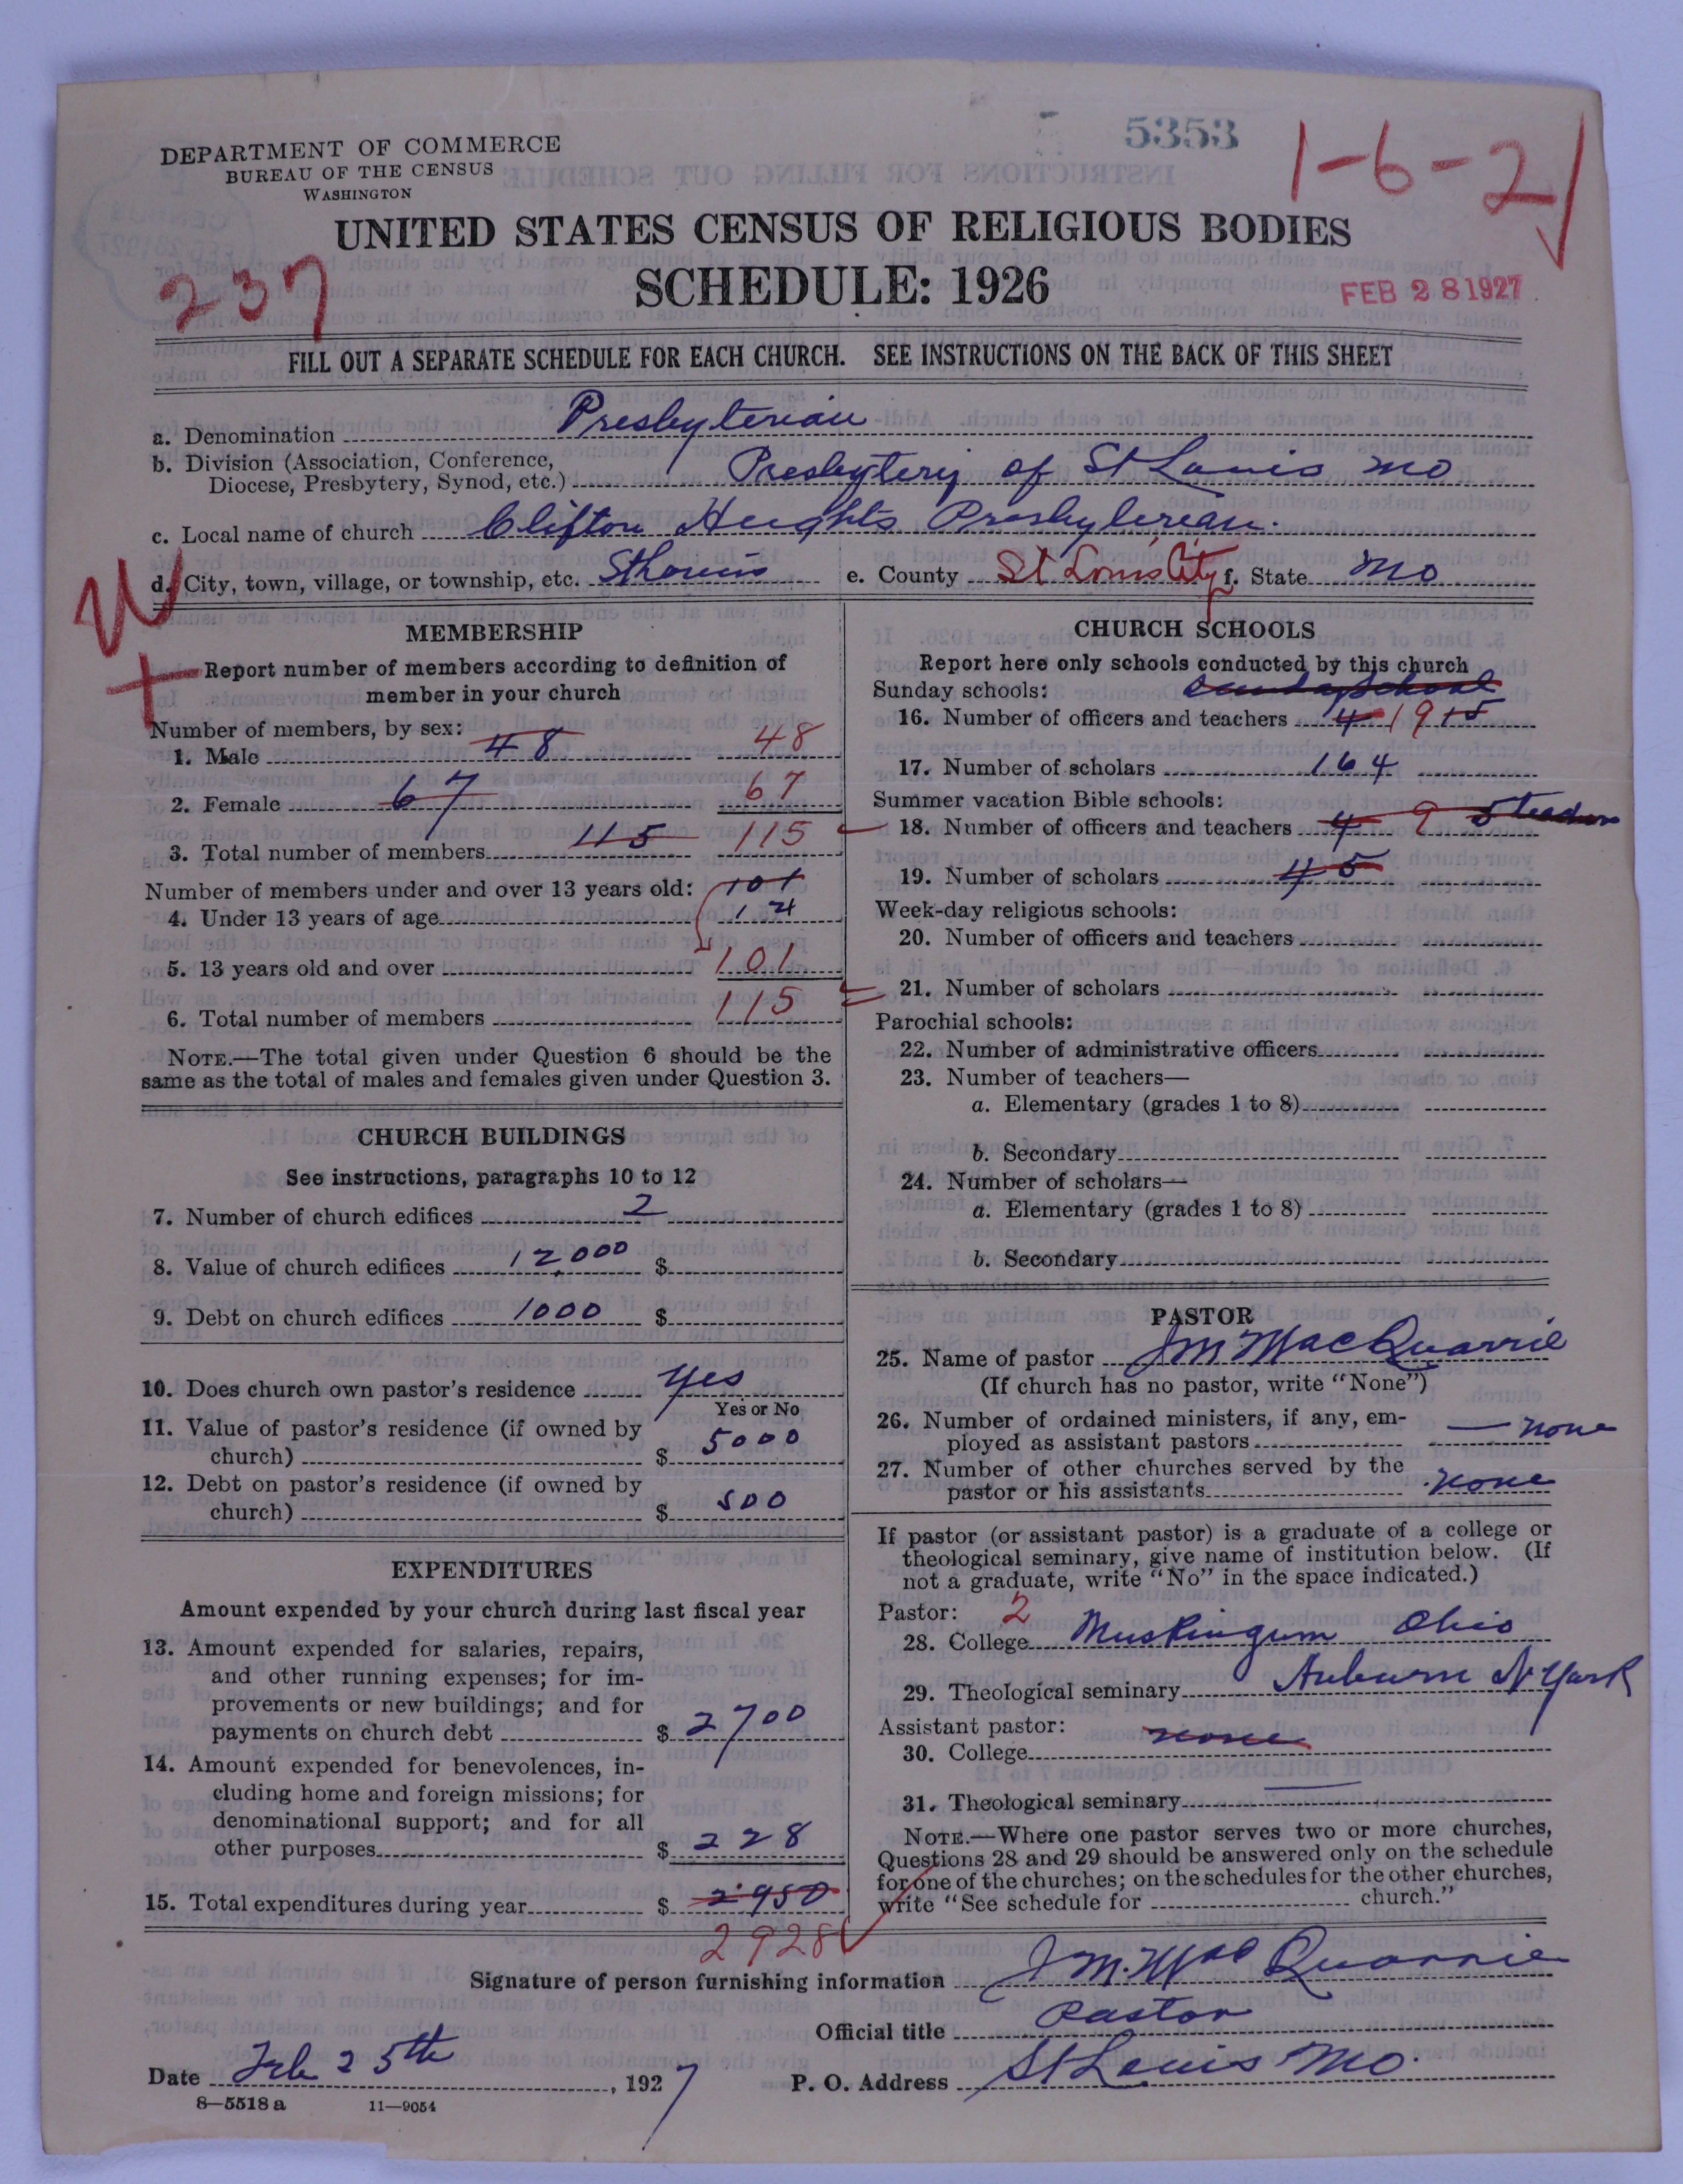 5353
1-6-2
DEPARTMENT OF COMMERCE
BUREAU OF THE CENSUS
WASHINGTON
UNITED STATES CENSUS OF RELIGIOUS BODIES
237
SCHEDULE: 1926
FEB 28 1927
FILL OUT A SEPARATE SCHEDULE FOR EACH CHURCH. SEE INSTRUCTIONS ON THE BACK OF THIS SHEET
a. Denomination Presbyterian
b. Division (Association, Conference,
Diocese, Presbytery, Synod, etc.) Presbytery of St Louis Mo
c. Local name of church Clifton Heights Presbyterian.
d. City, town, village, or township, etc. St Louis e. County St Louis City f. State Mo
MEMBERSHIP
Report number of members according to definition of
member in your church
Number of members, by sex:
1. Male 48 48
2. Female 67 67
3. Total number of members 115 115
Number of members under and over 13 years old: 101
4. Under 13 years of age 14
5. 13 years old and over 101
6. Total number of members 115
NOTE.—The total given under Question 6 should be the
same as the total of males and females given under Question 3.
CHURCH BUILDINGS
See instructions, paragraphs 10 to 12
7. Number of church edifices 2
8. Value of church edifices 12,000 $
9. Debt on church edifices 1000 $
10. Does church own pastor's residence Yes
Yes or No
11. Value of pastor's residence (if owned by
church) $ 5000
12. Debt on pastor's residence (if owned by
church) $ 500
EXPENDITURES
Amount expended by your church during last fiscal year
13. Amount expended for salaries, repairs,
and other running expenses; for im-
provements or new buildings; and for
payments on church debt $ 2700
14. Amount expended for benevolences, in-
cluding home and foreign missions; for
denominational support; and for all
other purposes $ 228
15. Total expenditures during year $ 2950
2928
CHURCH SCHOOLS
Report here only schools conducted by this church
Sunday schools: Sunday School
16. Number of officers and teachers 4 19 15
17. Number of scholars 164
Summer vacation Bible schools:
18. Number of officers and teachers 4 9
19. Number of scholars 45
Week-day religious schools:
20. Number of officers and teachers
21. Number of scholars
Parochial schools:
22. Number of administrative officers
23. Number of teachers—
a. Elementary (grades 1 to 8)
b. Secondary
24. Number of scholars—
a. Elementary (grades 1 to 8)
b. Secondary
PASTOR
25. Name of pastor J M MacQuarrie
(If church has no pastor, write "None")
26. Number of ordained ministers, if any, em-
ployed as assistant pastors — none
27. Number of other churches served by the
pastor or his assistants none
If pastor (or assistant pastor) is a graduate of a college or
theological seminary, give name of institution below. (If
not a graduate, write "No" in the space indicated.)
Pastor: 2
28. College Muskingum Ohio
29. Theological seminary Auburn N York
Assistant pastor: none
30. College
31. Theological seminary
NOTE.—Where one pastor serves two or more churches,
Questions 28 and 29 should be answered only on the schedule
for one of the churches; on the schedules for the other churches,
write "See schedule for church."
Signature of person furnishing information J M. MacQuarrie
Official title Pastor
Date Feb 25th, 1927 P. O. Address St Louis Mo.
8—5518 a 11—9054